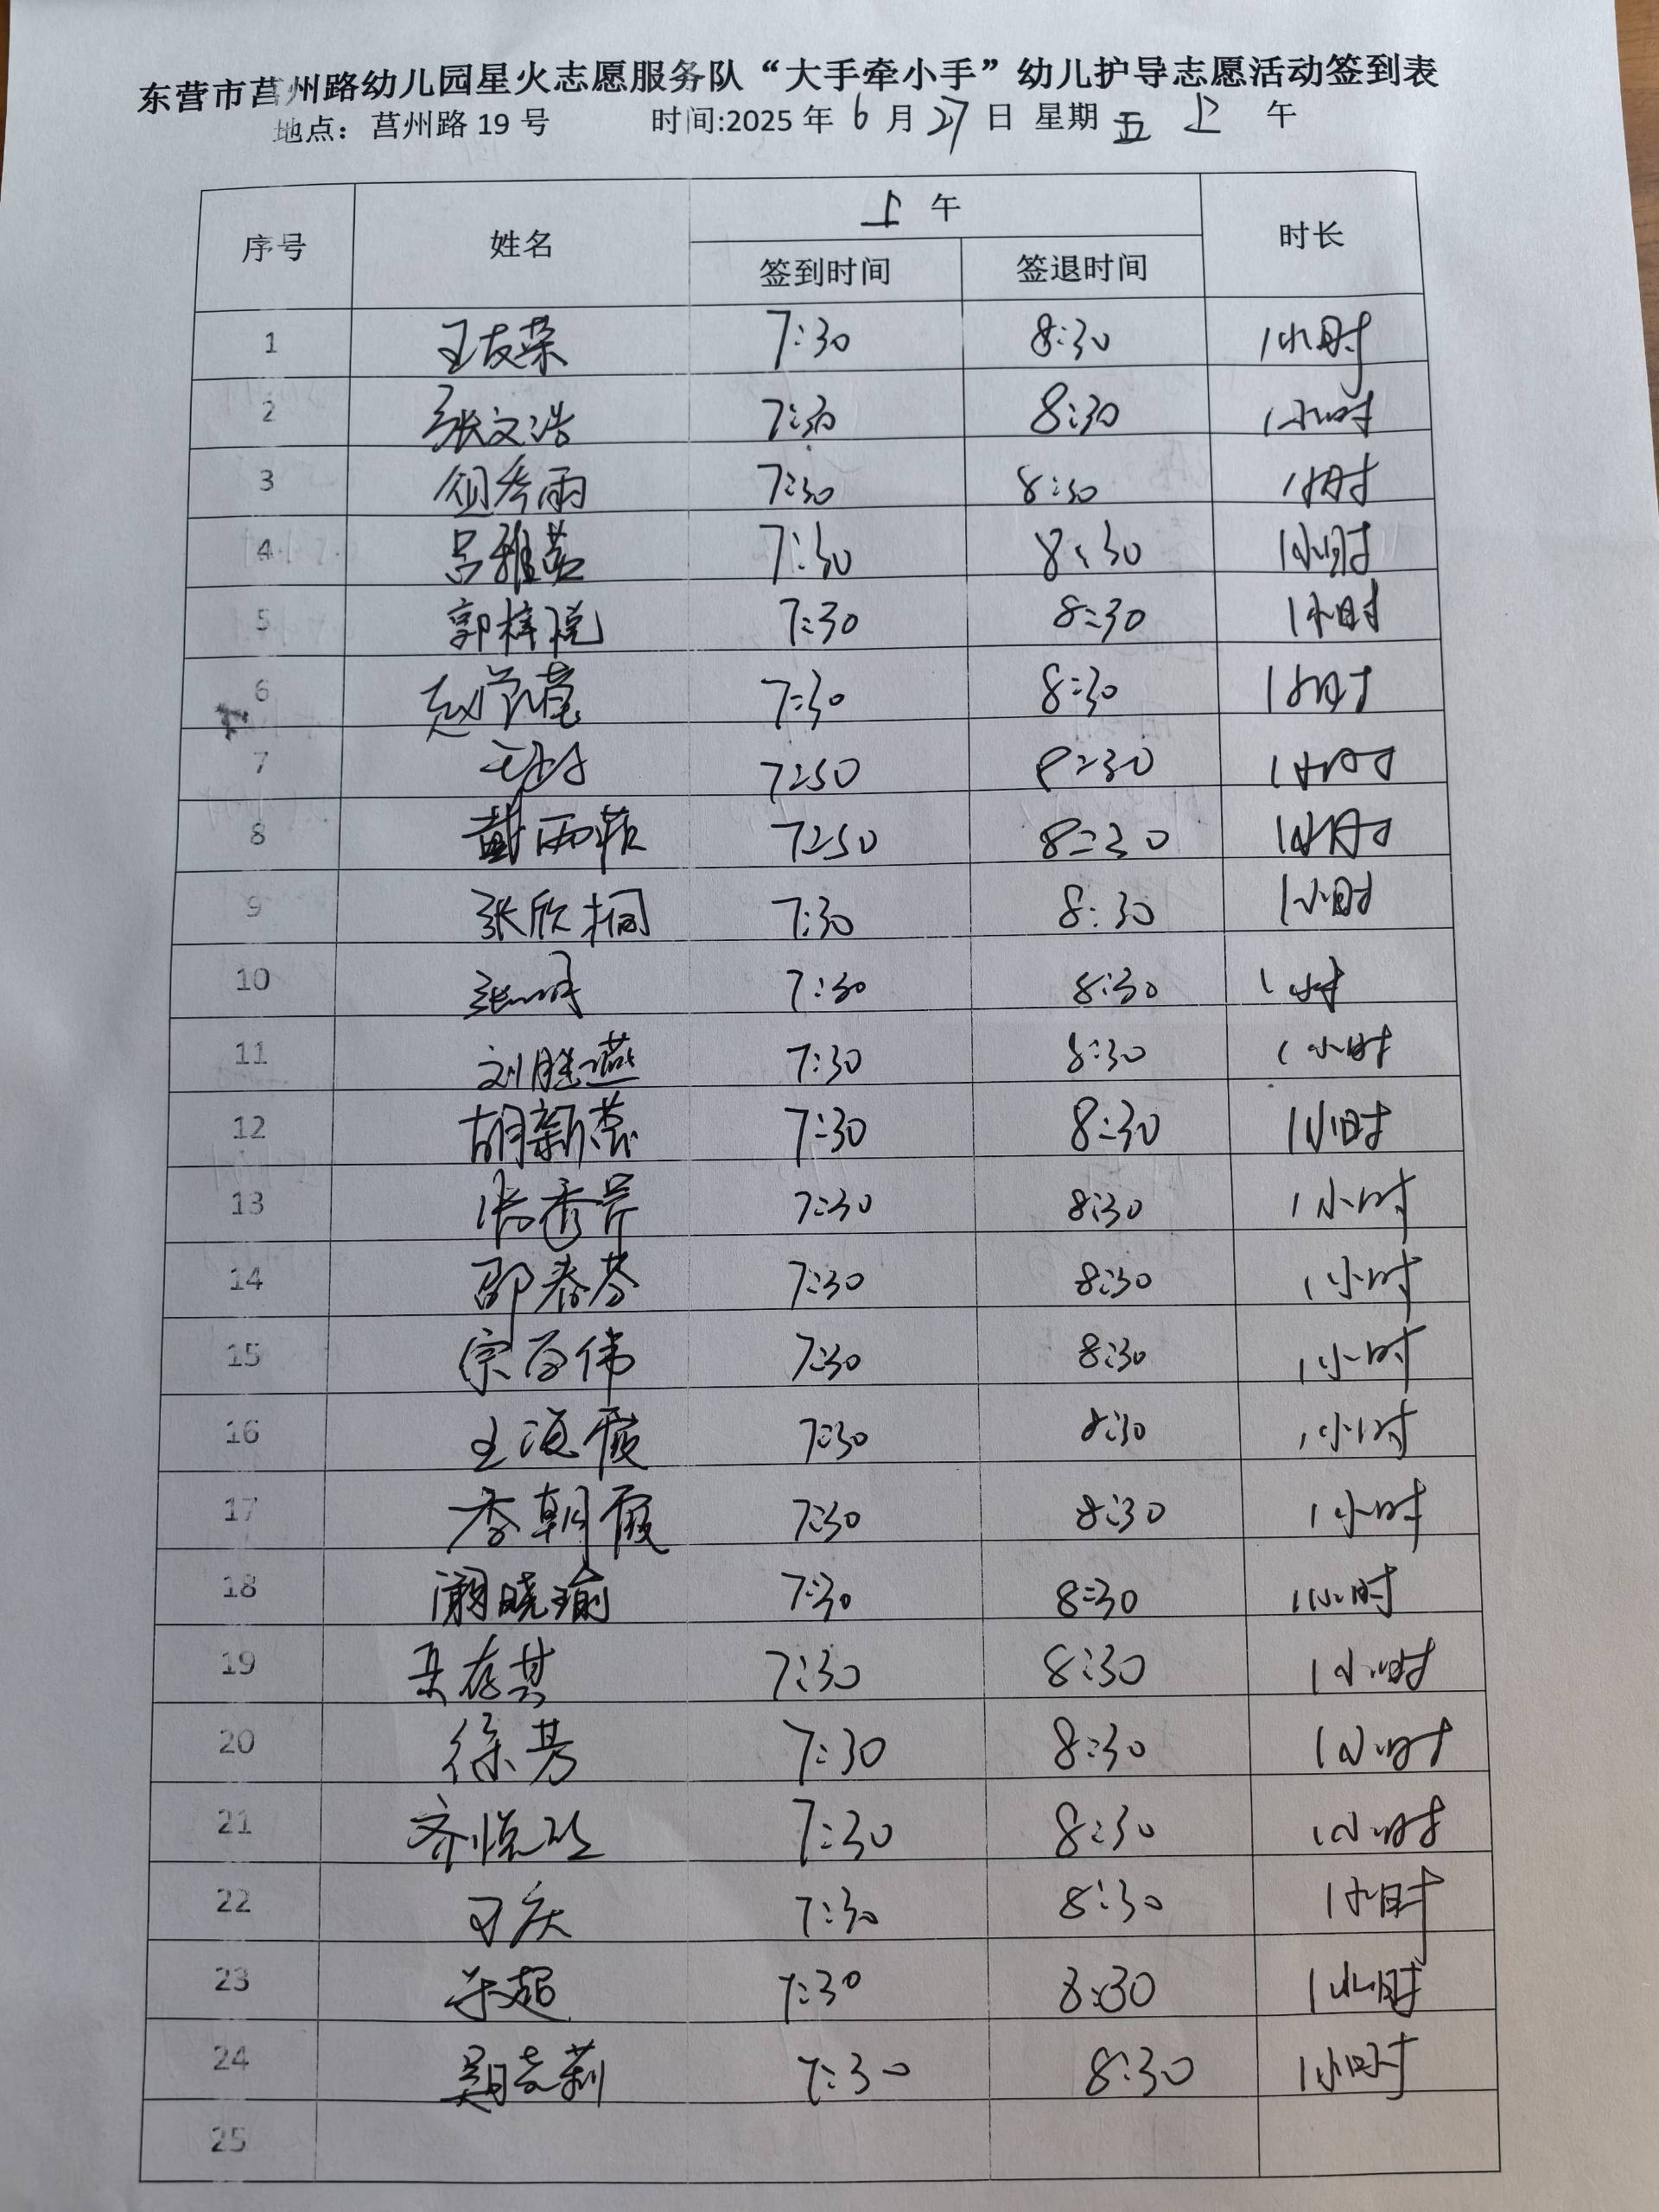 东营市莒州路幼儿园星火志愿服务队“大手牵小手”幼儿护导志愿活动签到表
地点：莒州路 19 号 时间:2025 年 6 月 27 日 星期 五 上 午
序号 姓名 上 午 时长
签到时间 签退时间
1 王友荣 7:30 8:30 1小时
2 张文浩 7:30 8:30 1小时
3 7:30 8:30 1小时
4 吕雅茹 7:30 8:30 1小时
5 郭梓悦 7:30 8:30 1小时
6 赵 7:30 8:30 1小时
7 7:50 8:30 1小时
8 戴雨轩 7:50 8:30 1小时
9 张欣桐 7:30 8:30 1小时
10 张 7:30 8:30 1小时
11 刘胜燕 7:30 8:30 1小时
12 胡新蕊 7:30 8:30 1小时
13 张秀芹 7:30 8:30 1小时
14 邵春苓 7:30 8:30 1小时
15 宗百伟 7:30 8:30 1小时
16 王海霞 7:30 8:30 1小时
17 李朝霞 7:30 8:30 1小时
18 晓瑜 7:30 8:30 1小时
19 7:30 8:30 1小时
20 徐芳 7:30 8:30 1小时
21 齐悦 7:30 8:30 1小时
22 庆 7:30 8:30 1小时
23 超 7:30 8:30 1小时
24 莉 7:30 8:30 1小时
25